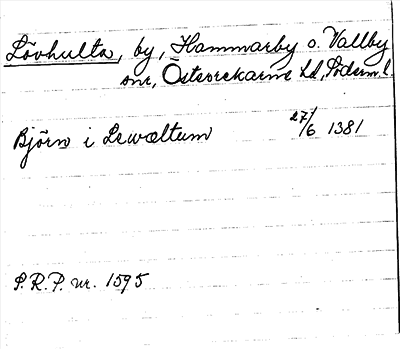 Lövhulta, by, Hammarby o. Vallby
snr, Österrekarne hd, Söderm. l.
Björn i Lewæltum 27/6 1381
S.R.P. nr. 1595